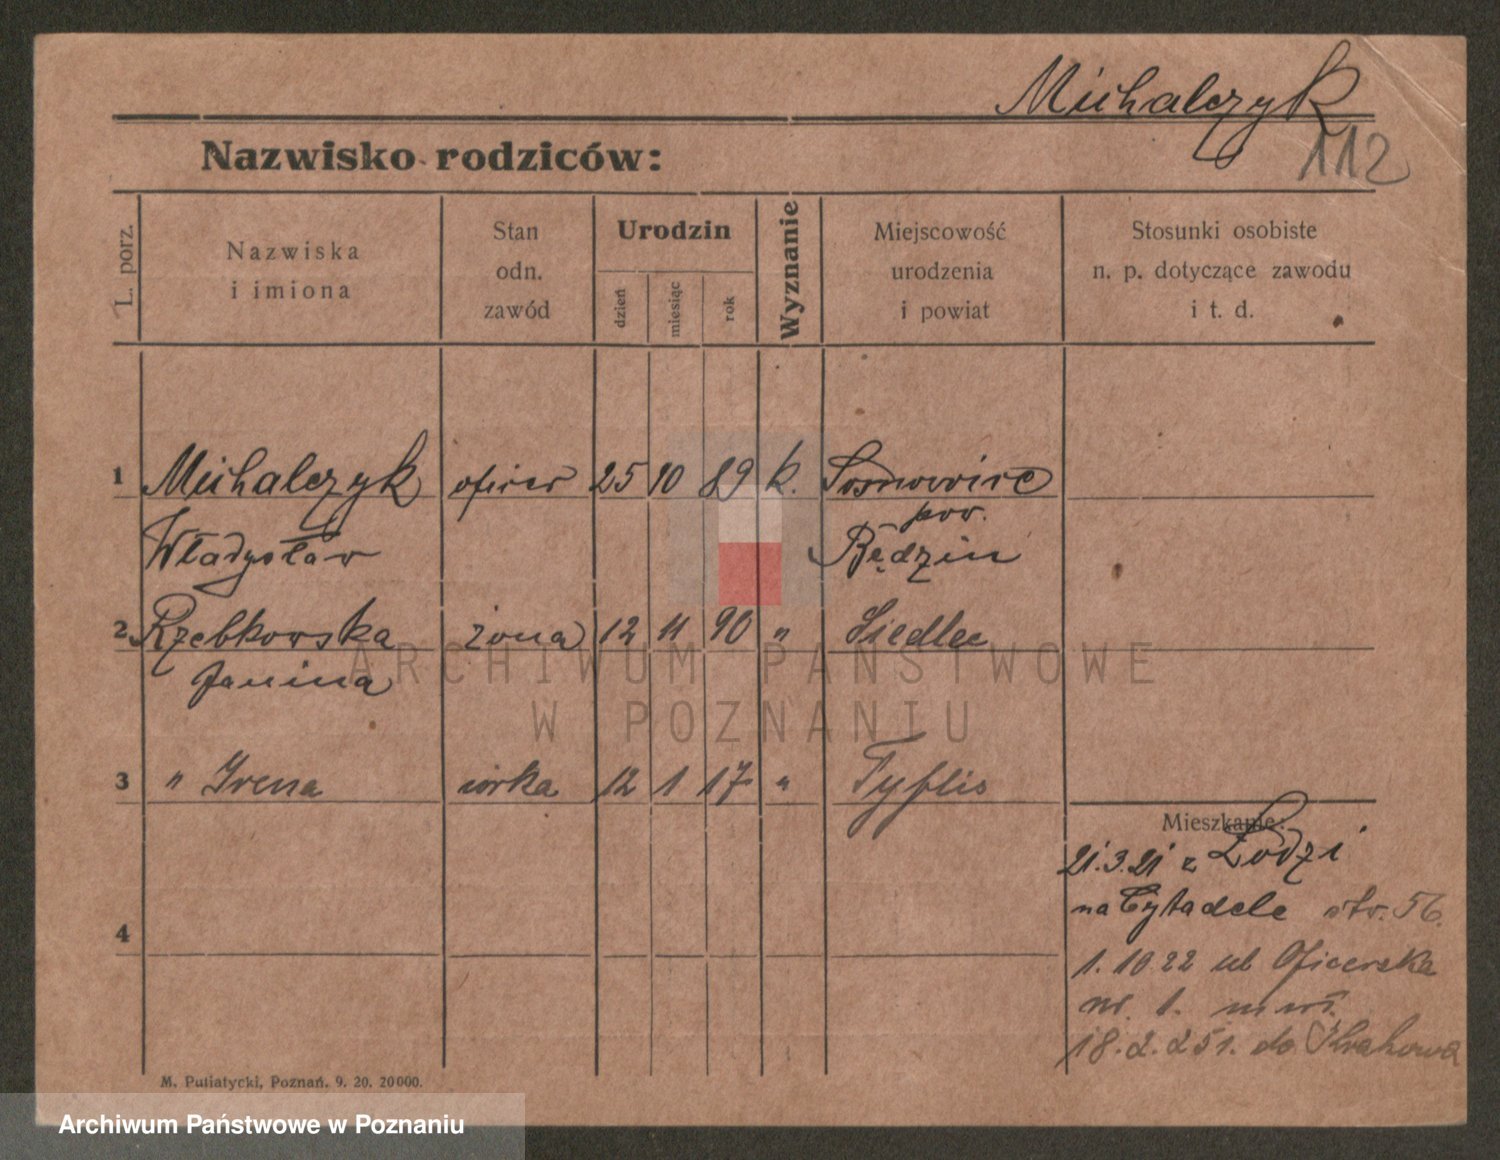 Michalczyk
112
Nazwisko rodziców:
L. porz.
Nazwiska
i imiona
Stan
odn.
zawód
Urodzin
dzień
miesiąc
rok
Wyznanie
Miejscowość
urodzenia
i powiat
Stosunki osobiste
n. p. dotyczące zawodu
i t. d.
1 Michalczyk oficer 25 10 89 k. Sosnowice
pow.
Władysław Będzin
2 Rzebkowska żona 12 11 90 " Siedlce
Janina
ARCHIWUM PAŃSTWOWE
W POZNANIU
3 " Irena córka 12 1 17 " Tyflis
Mieszkanie:
21.3.21 z Łodzi
na Cytadele str. 56.
4
1.10.22 ul Oficerska
nr. 1.
18.2.25 do Krakowa
M. Putiatycki, Poznań. 9. 20. 20000.
Archiwum Państwowe w Poznaniu